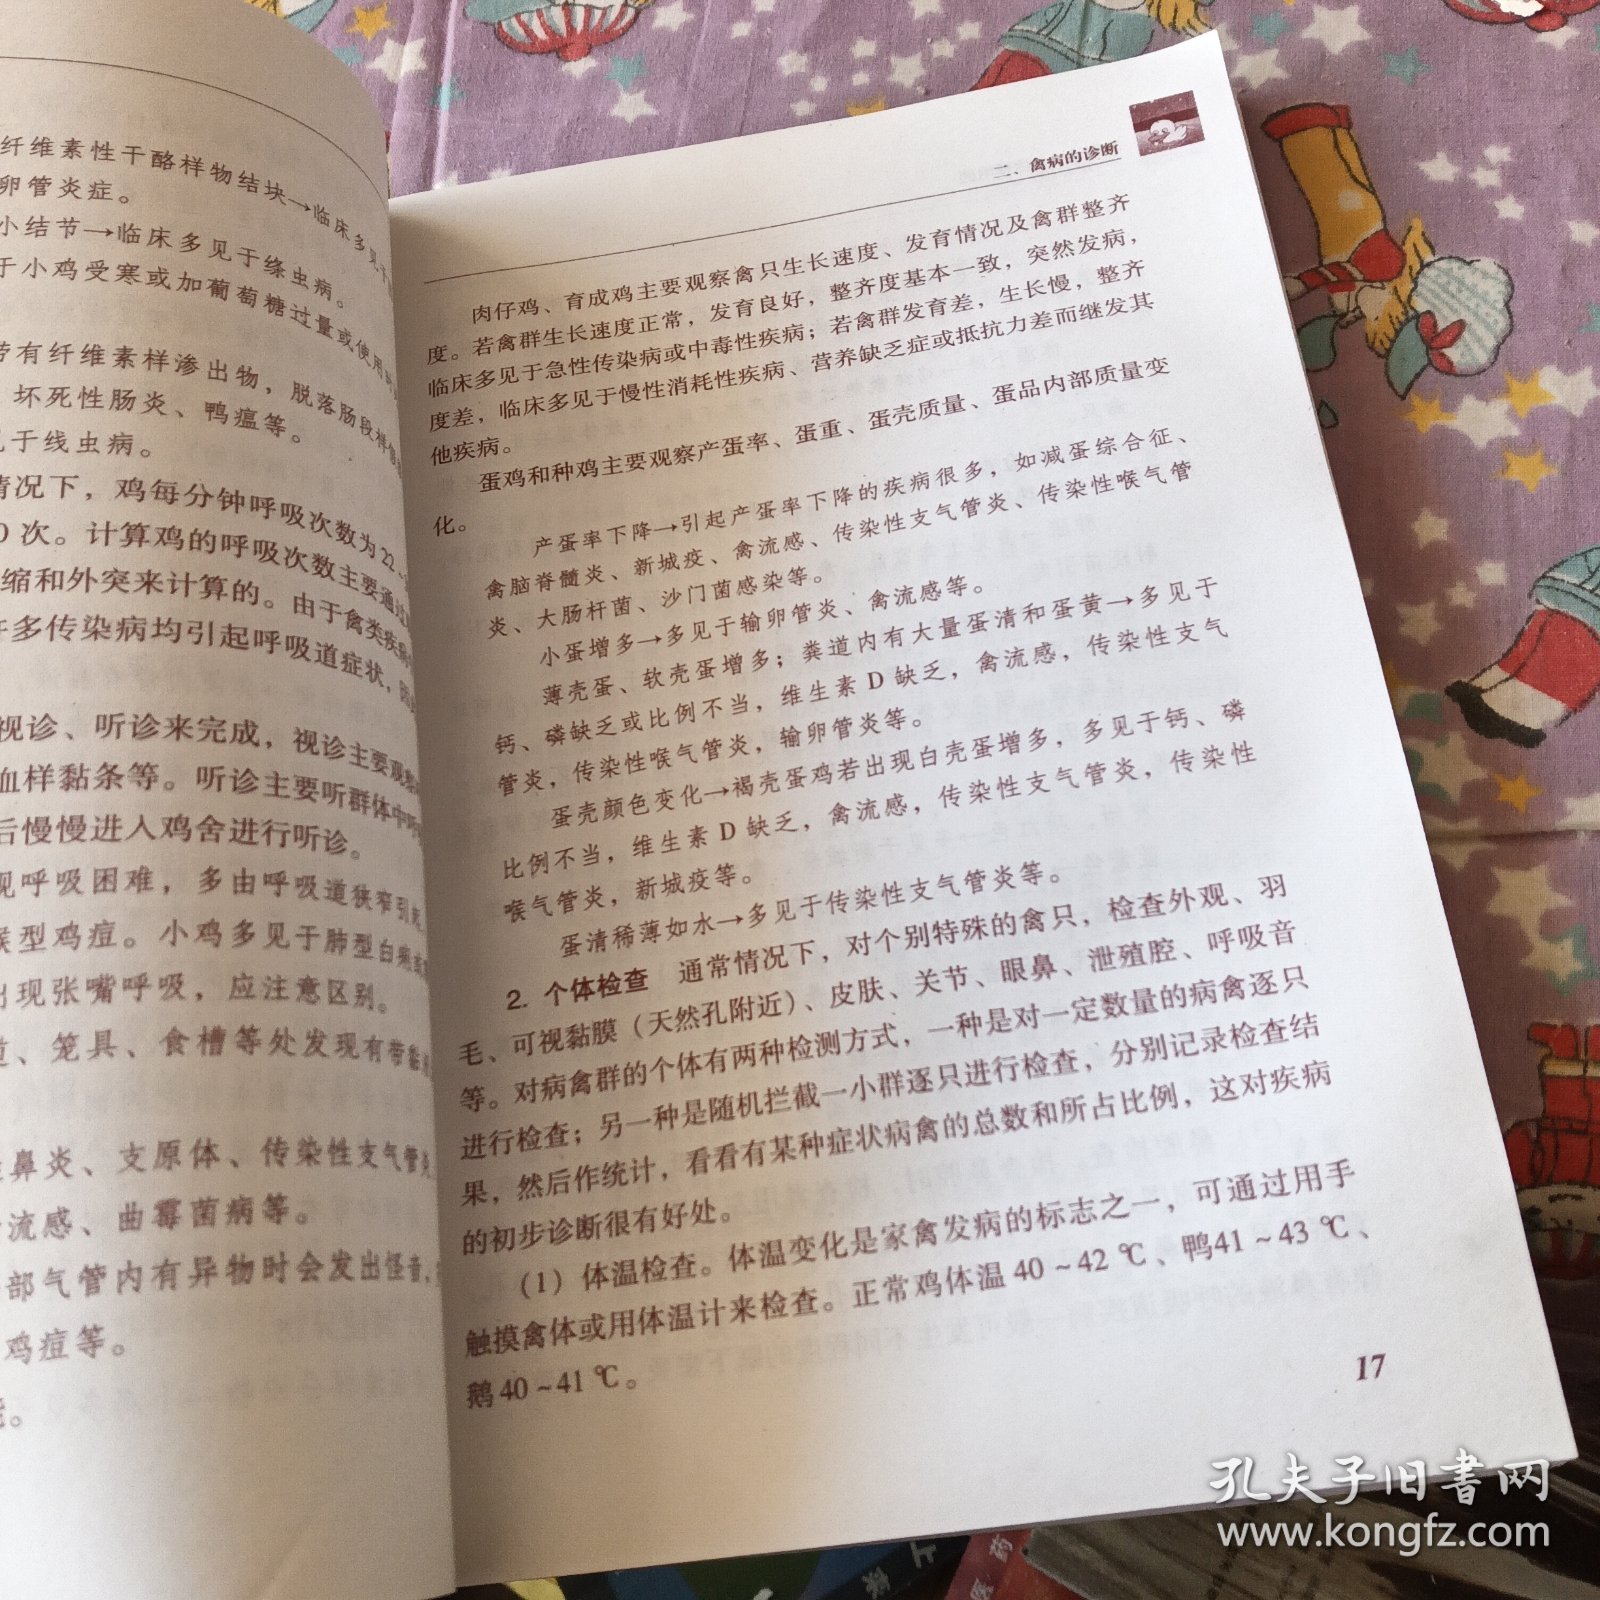 纤维素性干酪样物结块→临床多见于
卵管炎症。
小结节→临床多见于绦虫病。
于小鸡受寒或加葡萄糖过量或使用
带有纤维素样渗出物，脱落肠段样
坏死性肠炎、鸭瘟等。
于线虫病。
情况下，鸡每分钟呼吸次数为22~
0次。计算鸡的呼吸次数主要通过
缩和外突来计算的。由于禽类疾病
许多传染病均引起呼吸道症状，
视诊、听诊来完成，视诊主要观察
血样黏条等。听诊主要听群体中
后慢慢进入鸡舍进行听诊。
现呼吸困难，多由呼吸道狭窄引
喉型鸡痘。小鸡多见于肺型白
出现张嘴呼吸，应注意区别。
道、笼具、食槽等处发现有带黏
鼻炎、支原体、传染性支气管炎、
流感、曲霉菌病等。
部气管内有异物时会发出怪音，
鸡痘等。
二、禽病的诊断
肉仔鸡、育成鸡主要观察禽只生长速度、发育情况及禽群整齐
度。若禽群生长速度正常，发育良好，整齐度基本一致，突然发病，
临床多见于急性传染病或中毒性疾病；若禽群发育差，生长慢，整齐
度差，临床多见于慢性消耗性疾病、营养缺乏症或抵抗力差而继发其
他疾病。
蛋鸡和种鸡主要观察产蛋率、蛋重、蛋壳质量、蛋品内部质量变
化。
产蛋率下降→引起产蛋率下降的疾病很多，如减蛋综合征、
禽脑脊髓炎、新城疫、禽流感、传染性支气管炎、传染性喉气管
炎、大肠杆菌、沙门菌感染等。
小蛋增多→多见于输卵管炎、禽流感等。
薄壳蛋、软壳蛋增多；粪道内有大量蛋清和蛋黄→多见于
钙、磷缺乏或比例不当，维生素 D 缺乏，禽流感，传染性支气
管炎，传染性喉气管炎，输卵管炎等。
蛋壳颜色变化→褐壳蛋鸡若出现白壳蛋增多，多见于钙、磷
比例不当，维生素 D 缺乏，禽流感，传染性支气管炎，传染性
喉气管炎，新城疫等。
蛋清稀薄如水→多见于传染性支气管炎等。
2. 个体检查 通常情况下，对个别特殊的禽只，检查外观、羽
毛、可视黏膜（天然孔附近）、皮肤、关节、眼鼻、泄殖腔、呼吸音
等。对病禽群的个体有两种检测方式，一种是对一定数量的病禽逐只
进行检查；另一种是随机拦截一小群逐只进行检查，分别记录检查结
果，然后作统计，看看有某种症状病禽的总数和所占比例，这对疾病
的初步诊断很有好处。
（1）体温检查。体温变化是家禽发病的标志之一，可通过用手
触摸禽体或用体温计来检查。正常鸡体温 40 ~ 42 ℃、鸭41 ~ 43 ℃、
鹅 40 ~ 41 ℃。
17
孔夫子旧书网
www.kongfz.com